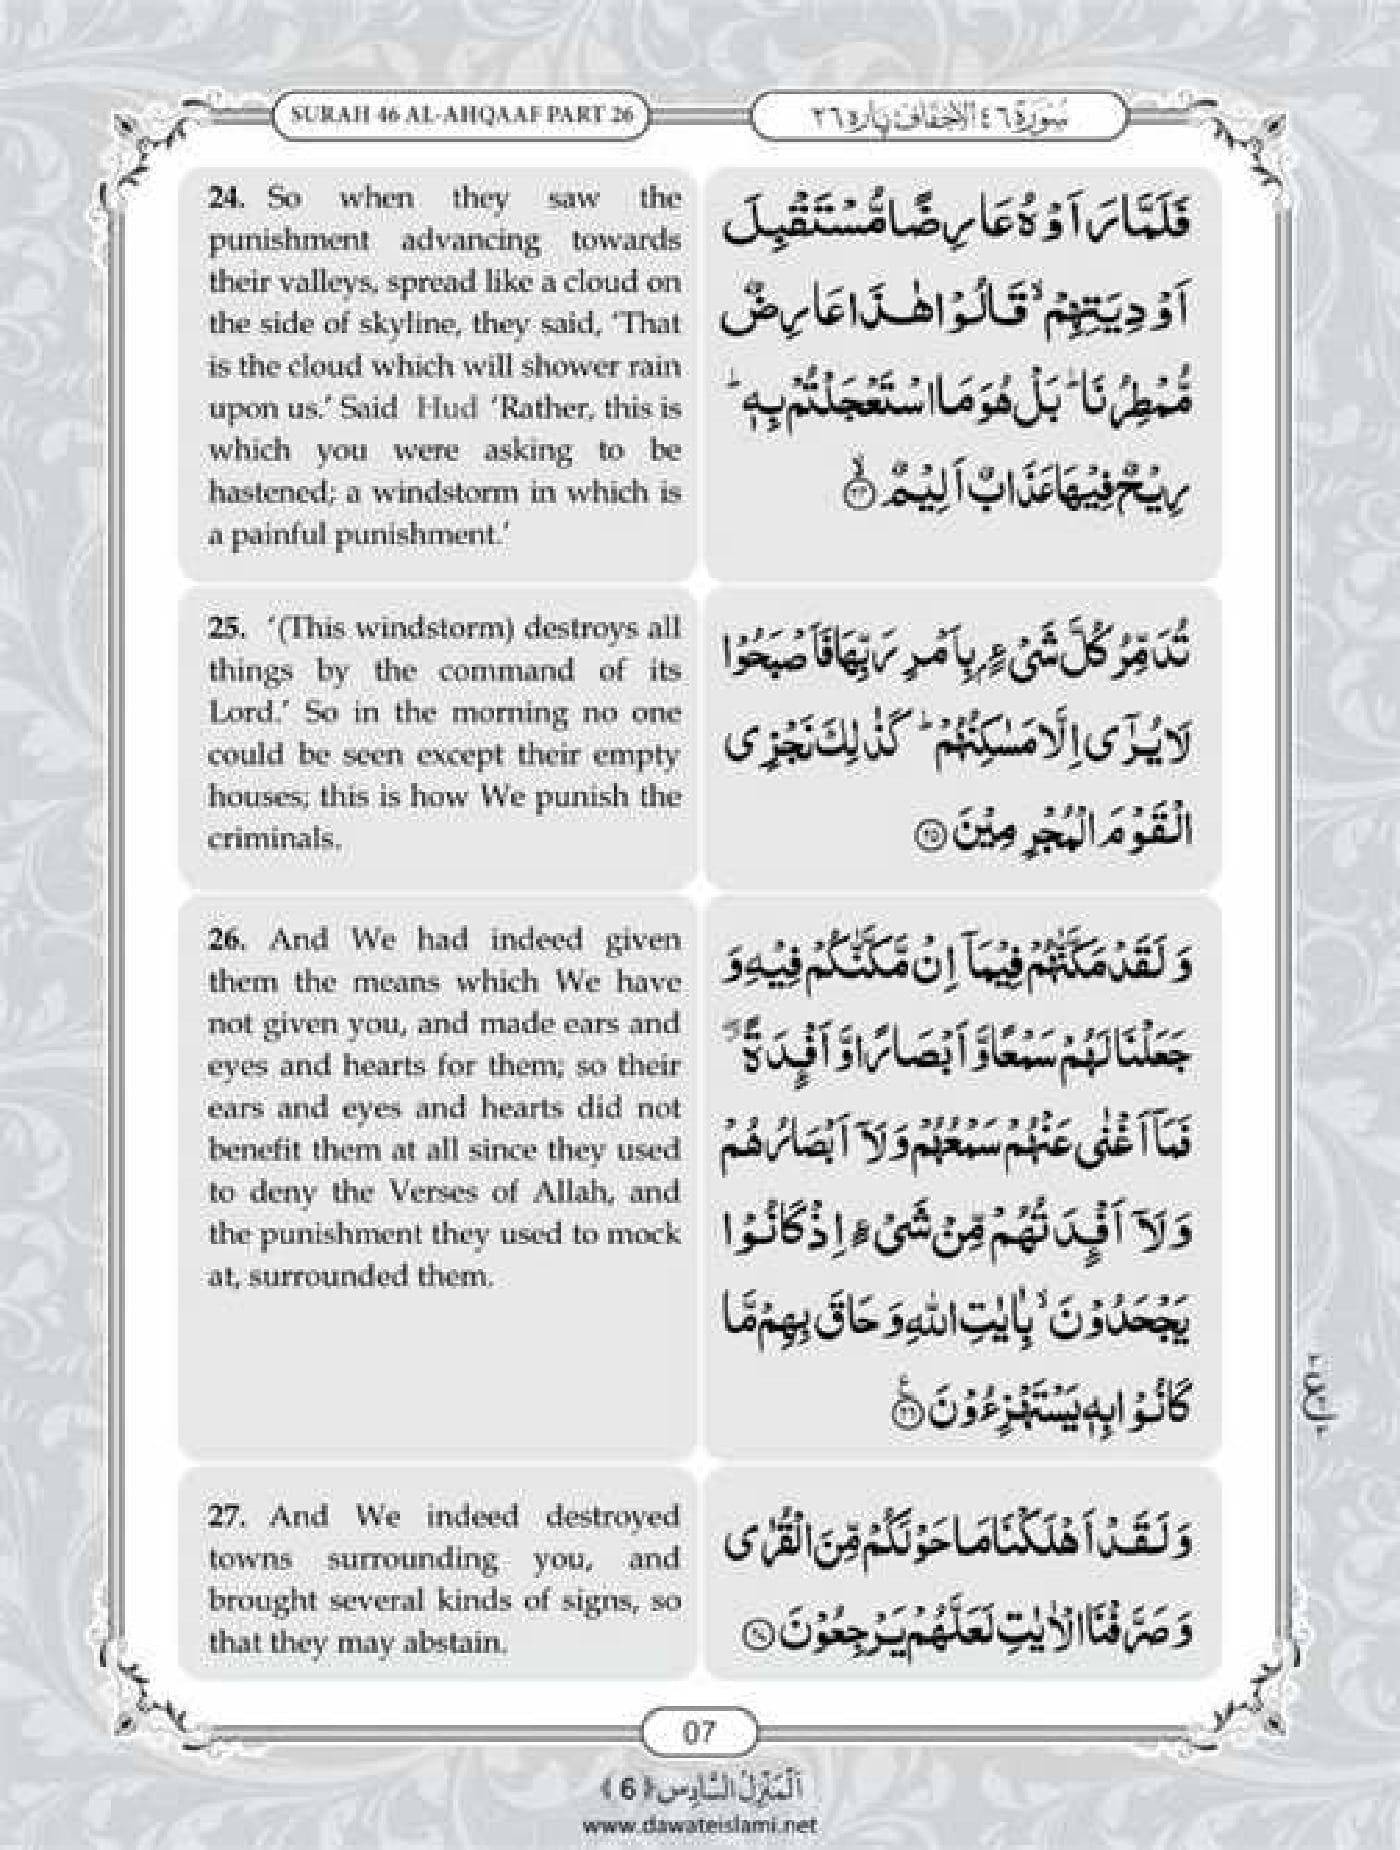 SURAH 46 AL-AHQAAF PART 26
سُورَة ٤٦ الاحقاف پاره ٢٦
24. So when they saw the
punishment advancing towards
their valleys, spread like a cloud on
the side of skyline, they said, ‘That
is the cloud which will shower rain
upon us.’ Said Hud ‘Rather, this is
which you were asking to be
hastened; a windstorm in which is
a painful punishment.’
فَلَمَّا رَاَوْهُ عَارِضًا مُّسْتَقْبِلَ
اَوْدِيَتِهِمْ ۙ قَالُوْا هٰذَا عَارِضٌ
مُّمْطِرُنَا ؕ بَلْ هُوَ مَا اسْتَعْجَلْتُمْ بِهٖ ؕ
رِيْحٌ فِيْهَا عَذَابٌ اَلِيْمٌ ۙ﴿۲۴﴾
25. ‘(This windstorm) destroys all
things by the command of its
Lord.’ So in the morning no one
could be seen except their empty
houses; this is how We punish the
criminals.
تُدَمِّرُ كُلَّ شَیْءٍۭ بِاَمْرِ رَبِّهَا فَاَصْبَحُوْا
لَا يُرٰۤی اِلَّا مَسٰكِنُهُمْ ؕ كَذٰلِكَ نَجْزِی
الْقَوْمَ الْمُجْرِمِيْنَ ﴿۲۵﴾
26. And We had indeed given
them the means which We have
not given you, and made ears and
eyes and hearts for them; so their
ears and eyes and hearts did not
benefit them at all since they used
to deny the Verses of Allah, and
the punishment they used to mock
at, surrounded them.
وَ لَقَدْ مَكَّنّٰهُمْ فِيْمَاۤ اِنْ مَّكَّنّٰكُمْ فِيْهِ وَ
جَعَلْنَا لَهُمْ سَمْعًا وَّ اَبْصَارًا وَّ اَفْـِٕدَةً ۫ۖ
فَمَاۤ اَغْنٰی عَنْهُمْ سَمْعُهُمْ وَ لَاۤ اَبْصَارُهُمْ
وَ لَاۤ اَفْـِٕدَتُهُمْ مِّنْ شَیْءٍ اِذْ كَانُوْا
يَجْحَدُوْنَ ۙ بِاٰيٰتِ اللّٰهِ وَ حَاقَ بِهِمْ مَّا
كَانُوْا بِهٖ يَسْتَهْزِءُوْنَ ﴿۲۶﴾
27. And We indeed destroyed
towns surrounding you, and
brought several kinds of signs, so
that they may abstain.
وَ لَقَدْ اَهْلَكْنَا مَا حَوْلَكُمْ مِّنَ الْقُرٰی
وَ صَرَّفْنَا الْاٰيٰتِ لَعَلَّهُمْ يَرْجِعُوْنَ ﴿۲۷﴾
07
اَلْمَنْزِلُ السَّادِس ﴿6﴾
www.dawateislami.net